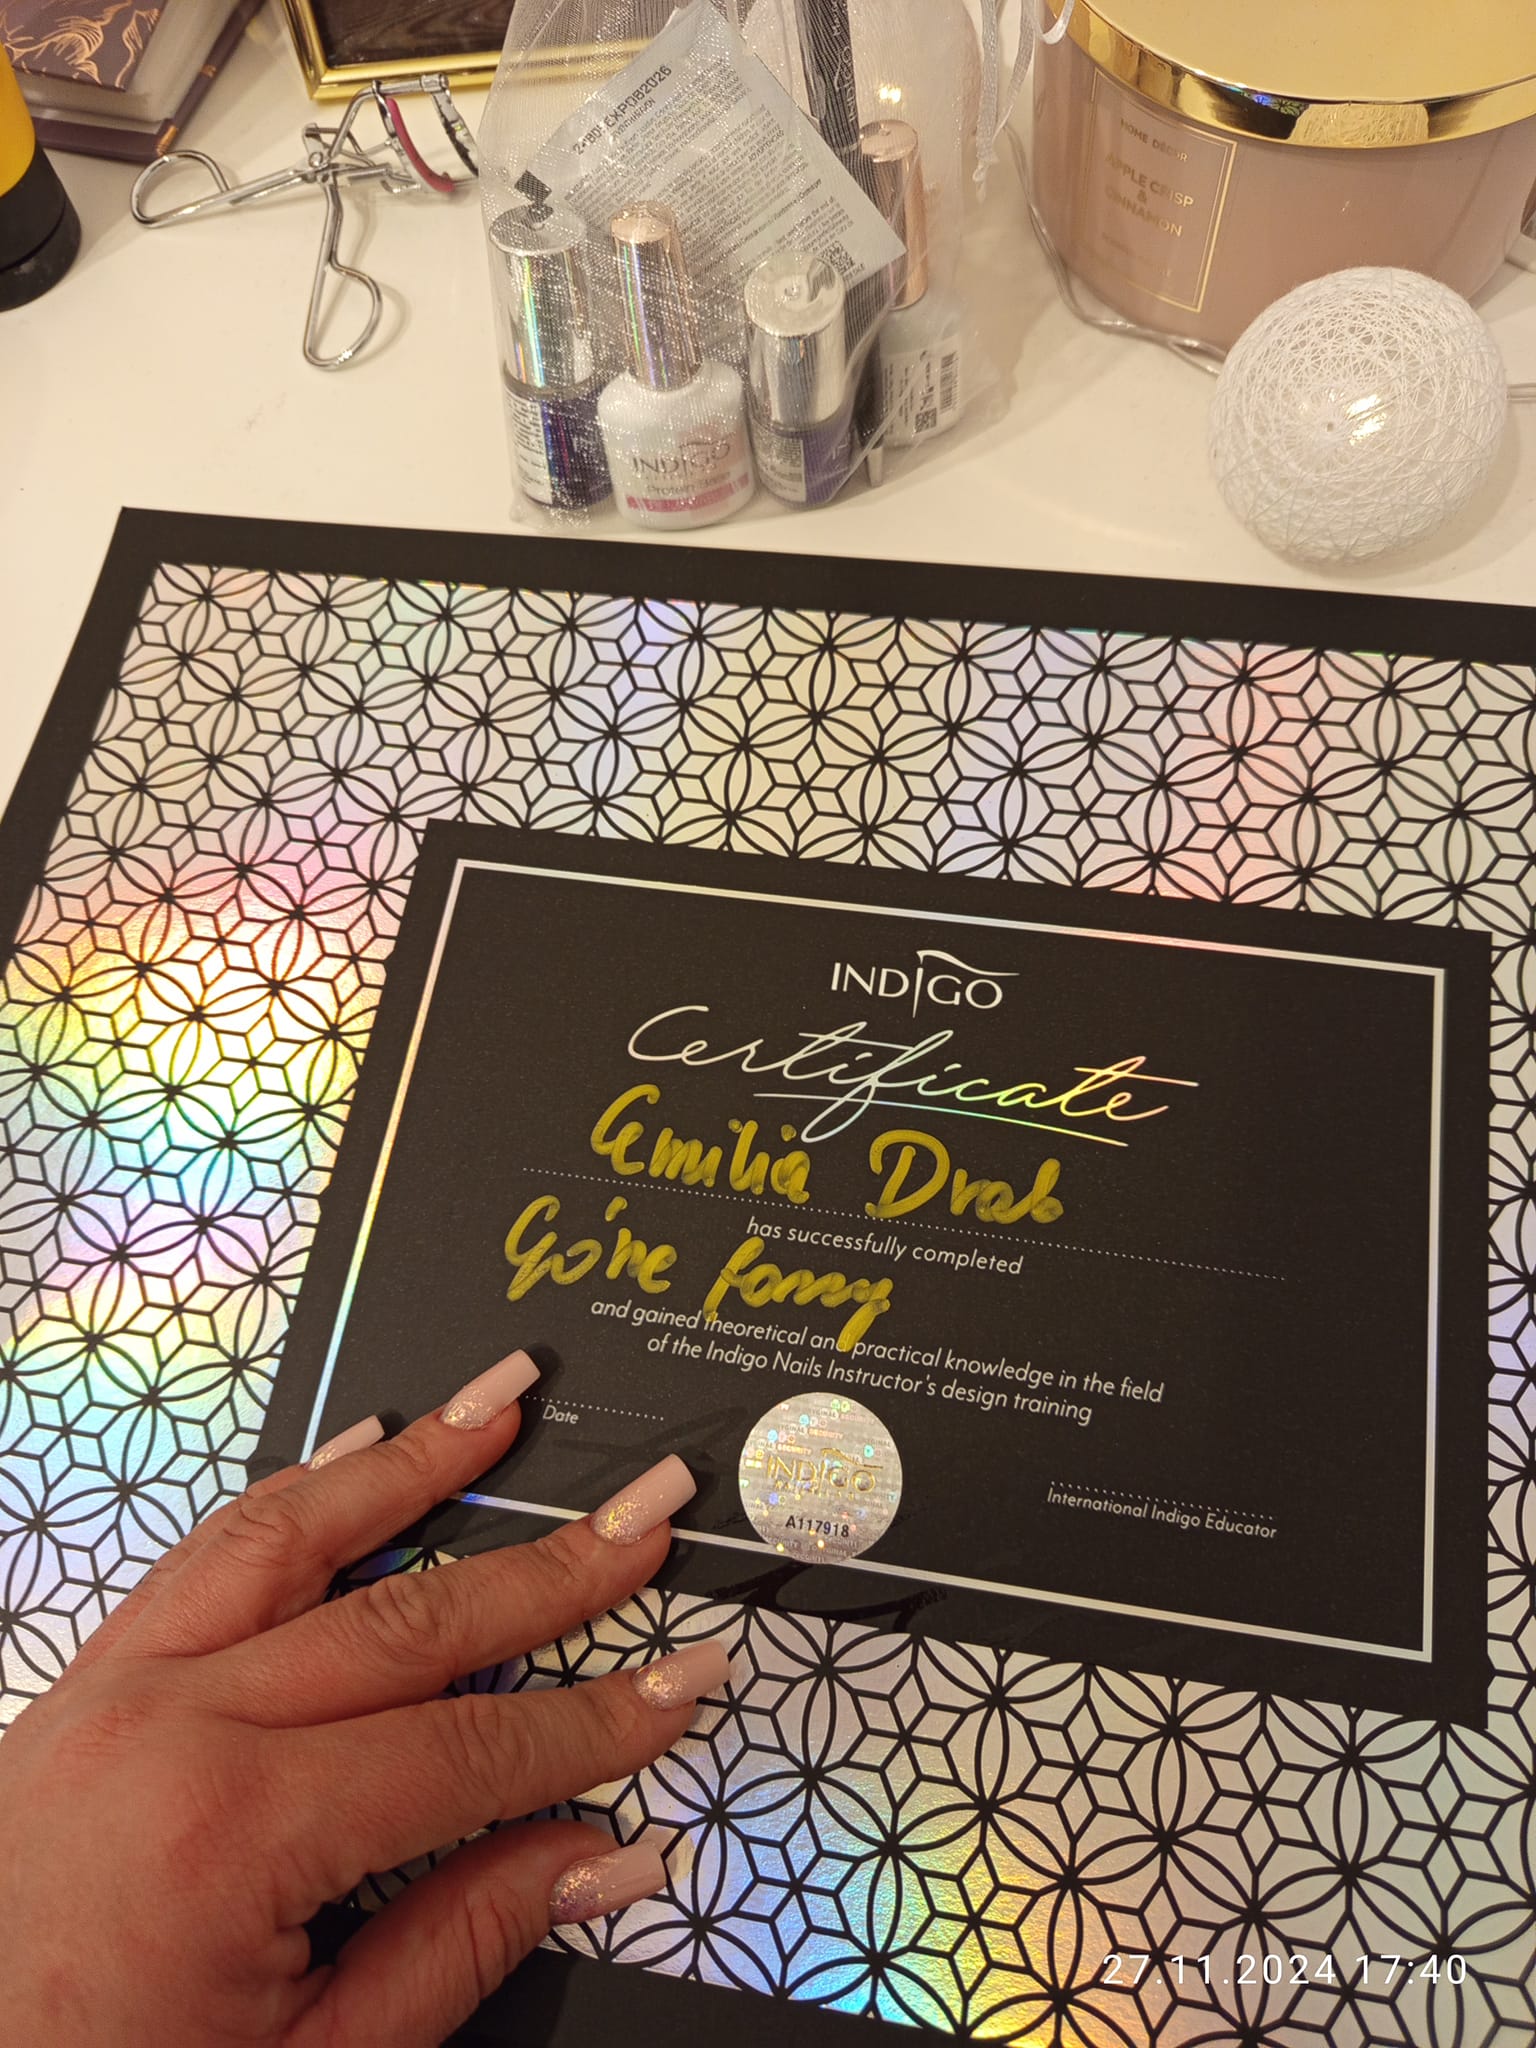 2-BD! EXP082026
INDIGO
HOME DÉCOR
APPLE CRISP
&
CINNAMON
INDIGO
Protein Base
INDIGO
Certificate
Emilia Drab
has successfully completed
Górne formy
and gained theoretical and practical knowledge in the field
of the Indigo Nails Instructor's design training
Date
SECURITY
INDIGO
A117918
International Indigo Educator
27.11.2024 17:40